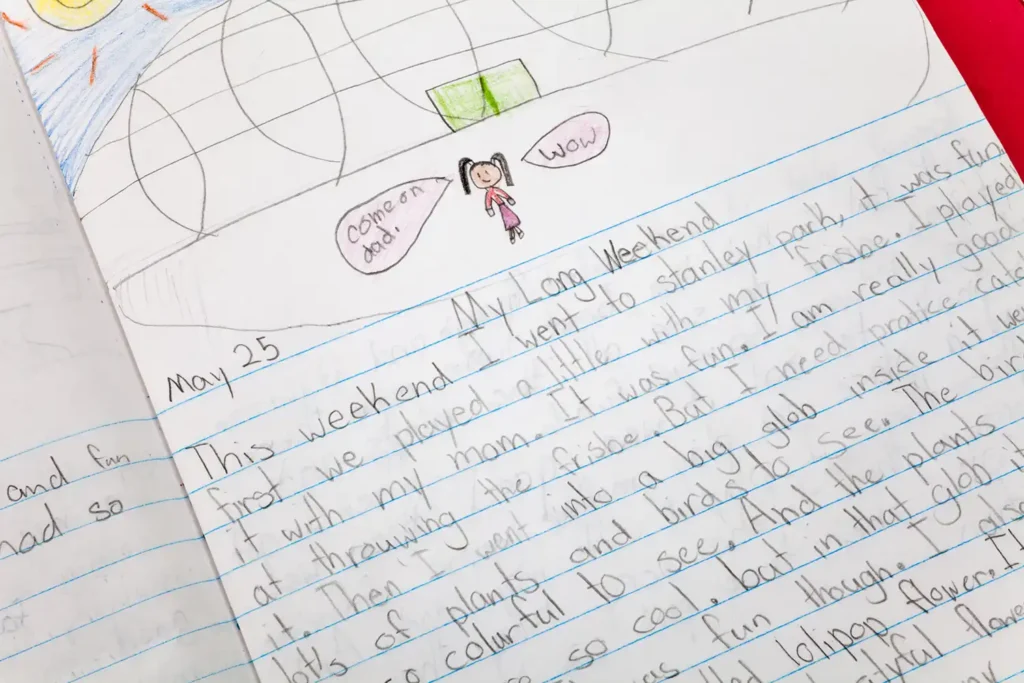 come on
dad.
wow
My Long Weekend
May 25
This weekend I went to stanley park, it was fun
first we played a littles with my frisbe. I played
it with my mom. It was fun. I am really good
at throuwing the frisbe. But I need pratice catc
it. Then I went into a big glob inside it we
lot's of plants and birds to see. The bir
so colurful to see. And the plants
so cool. but in that glob it
as fun though. I also
lolipop flower. I
flowe
and fun
had so